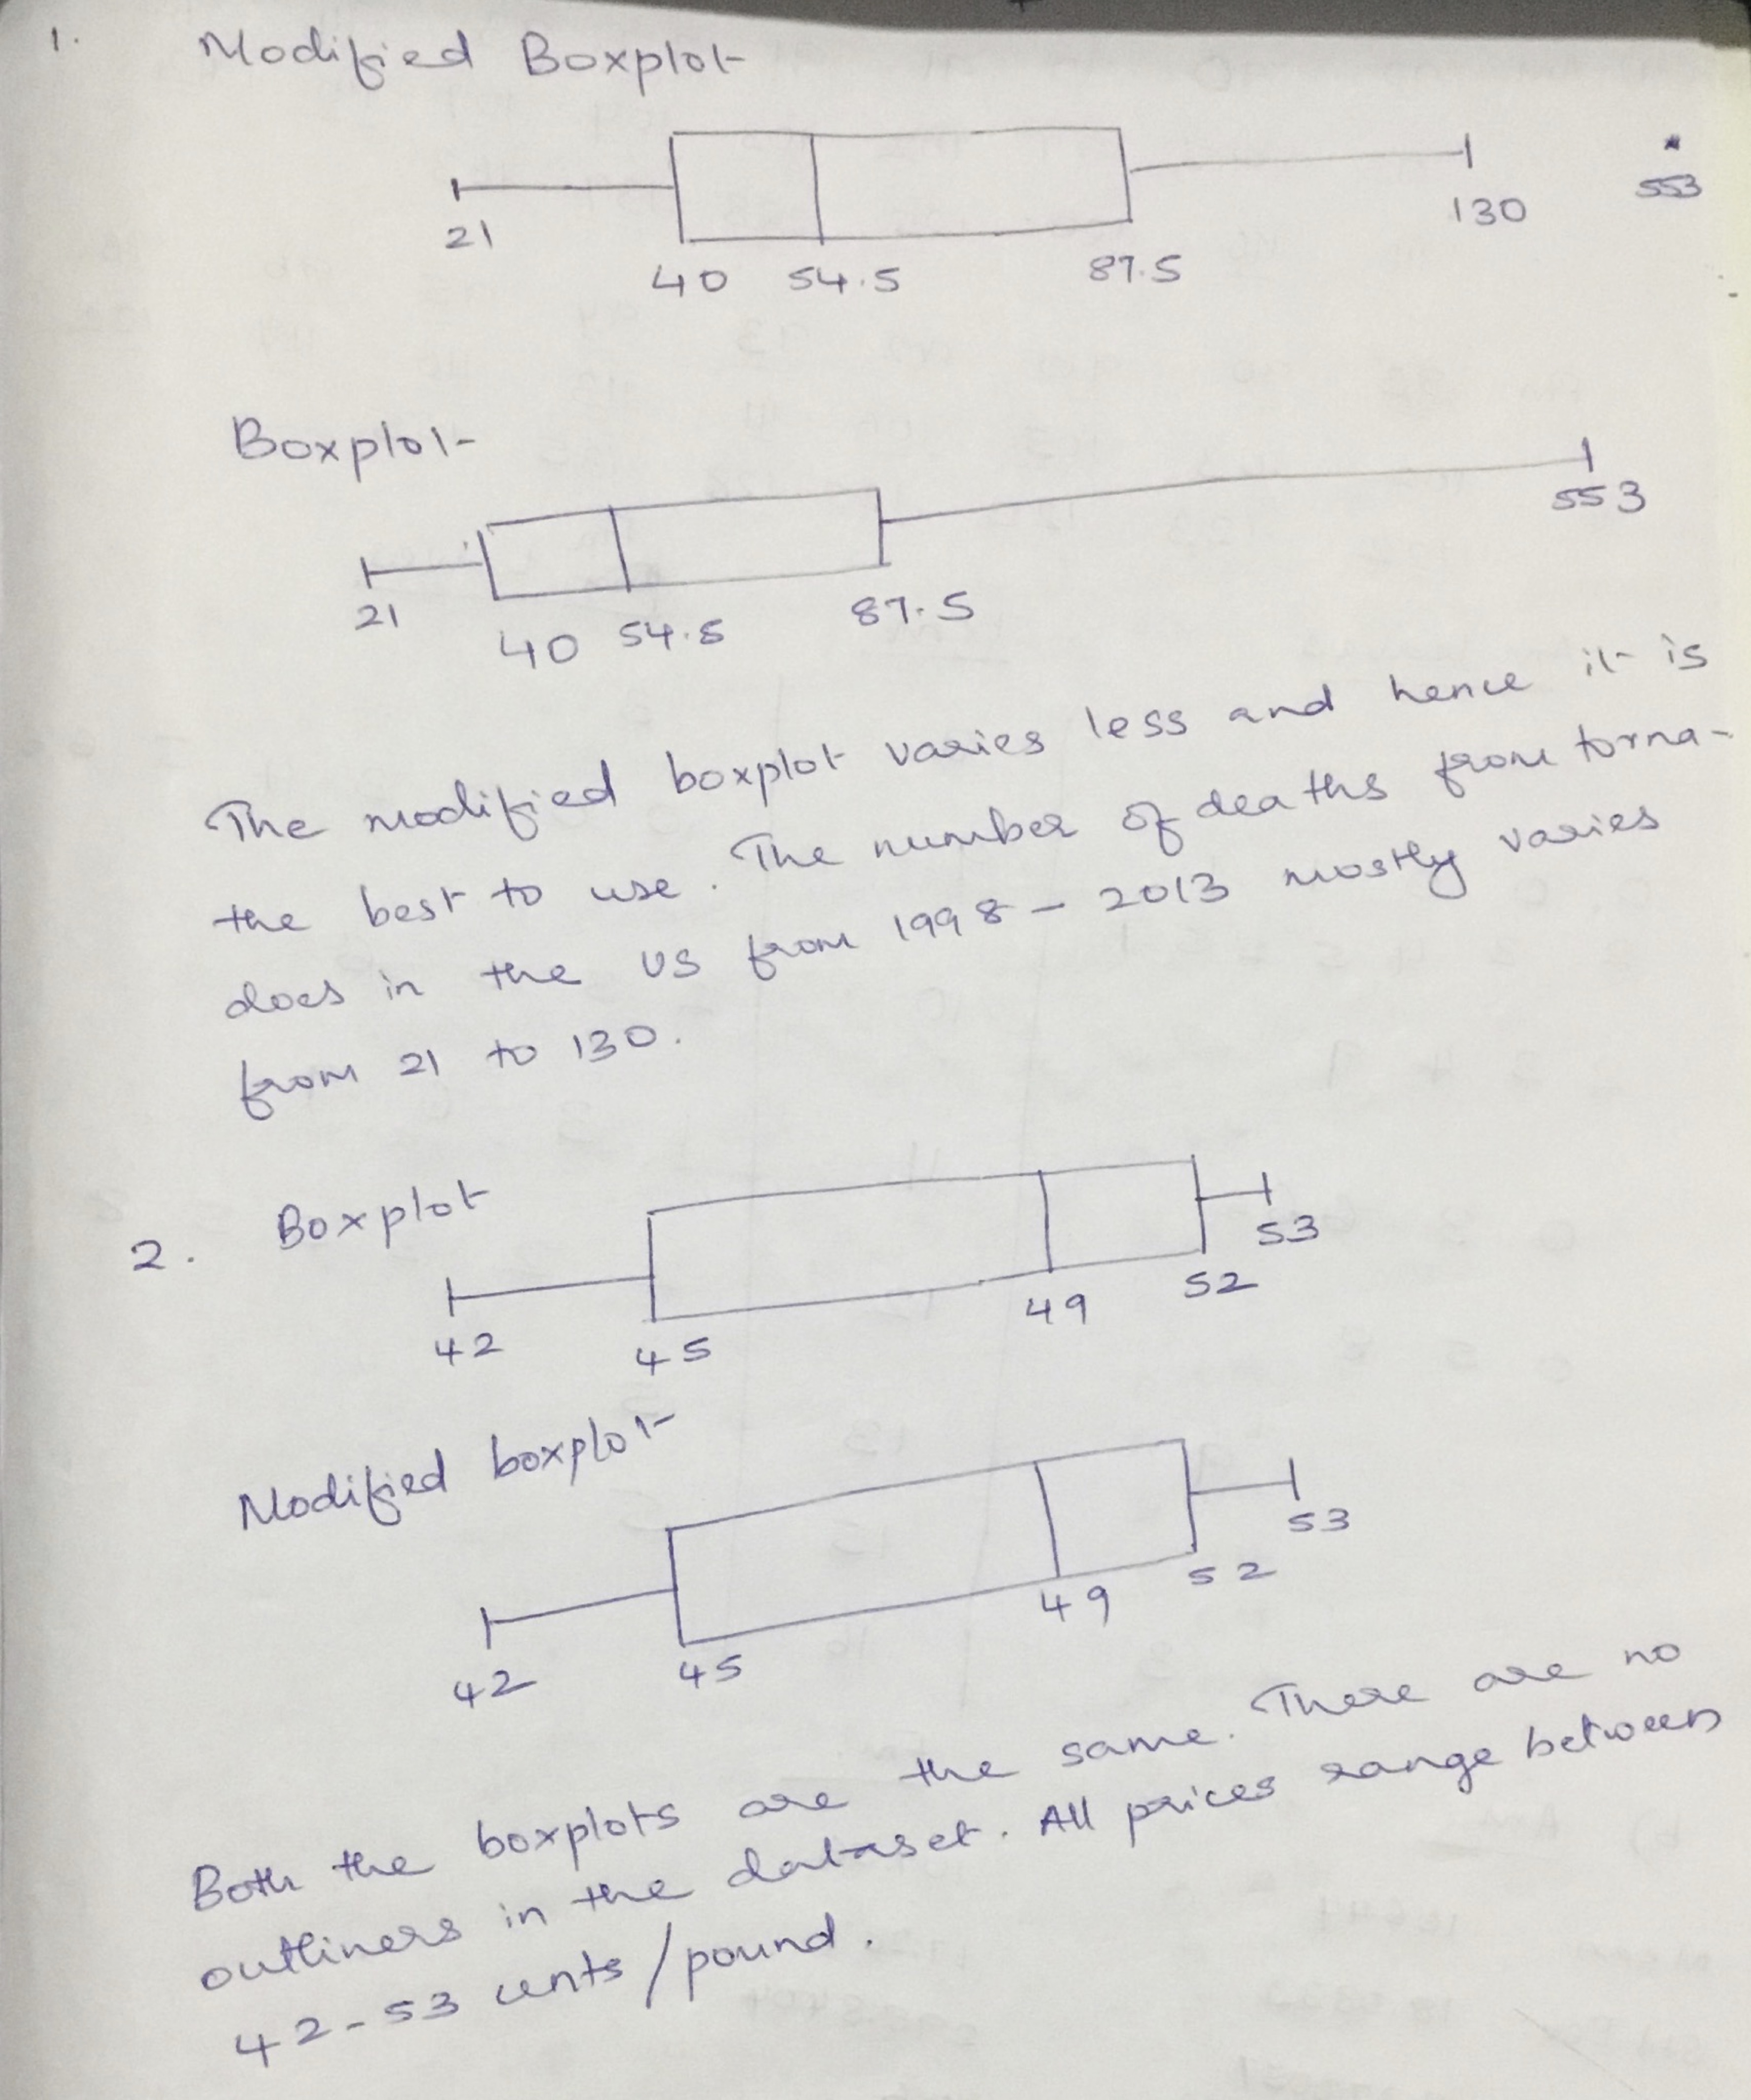 1. Modified Boxplot
21 40 54.5 87.5 130 553
Boxplot
21 40 54.5 87.5 553
The modified boxplot varies less and hence it is
the best to use. The number of deaths from torna-
does in the US from 1998 - 2013 mostly varies
from 21 to 130.
2. Boxplot
42 45 49 52 53
Modified boxplot
42 45 49 52 53
Both the boxplots are the same. There are no
outliners in the dataset. All prices range between
42-53 cents/pound.